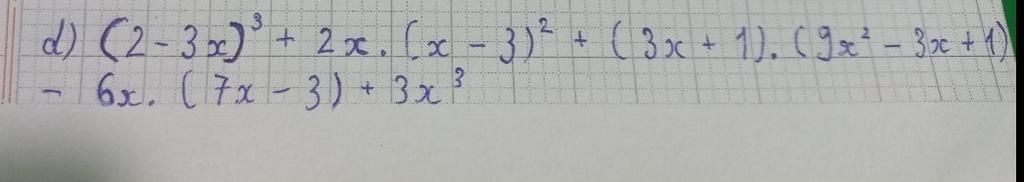 d) (2 - 3x)³ + 2x. (x - 3)² + (3x + 1). (9x² - 3x + 1)
- 6x. (7x - 3) + 3x³